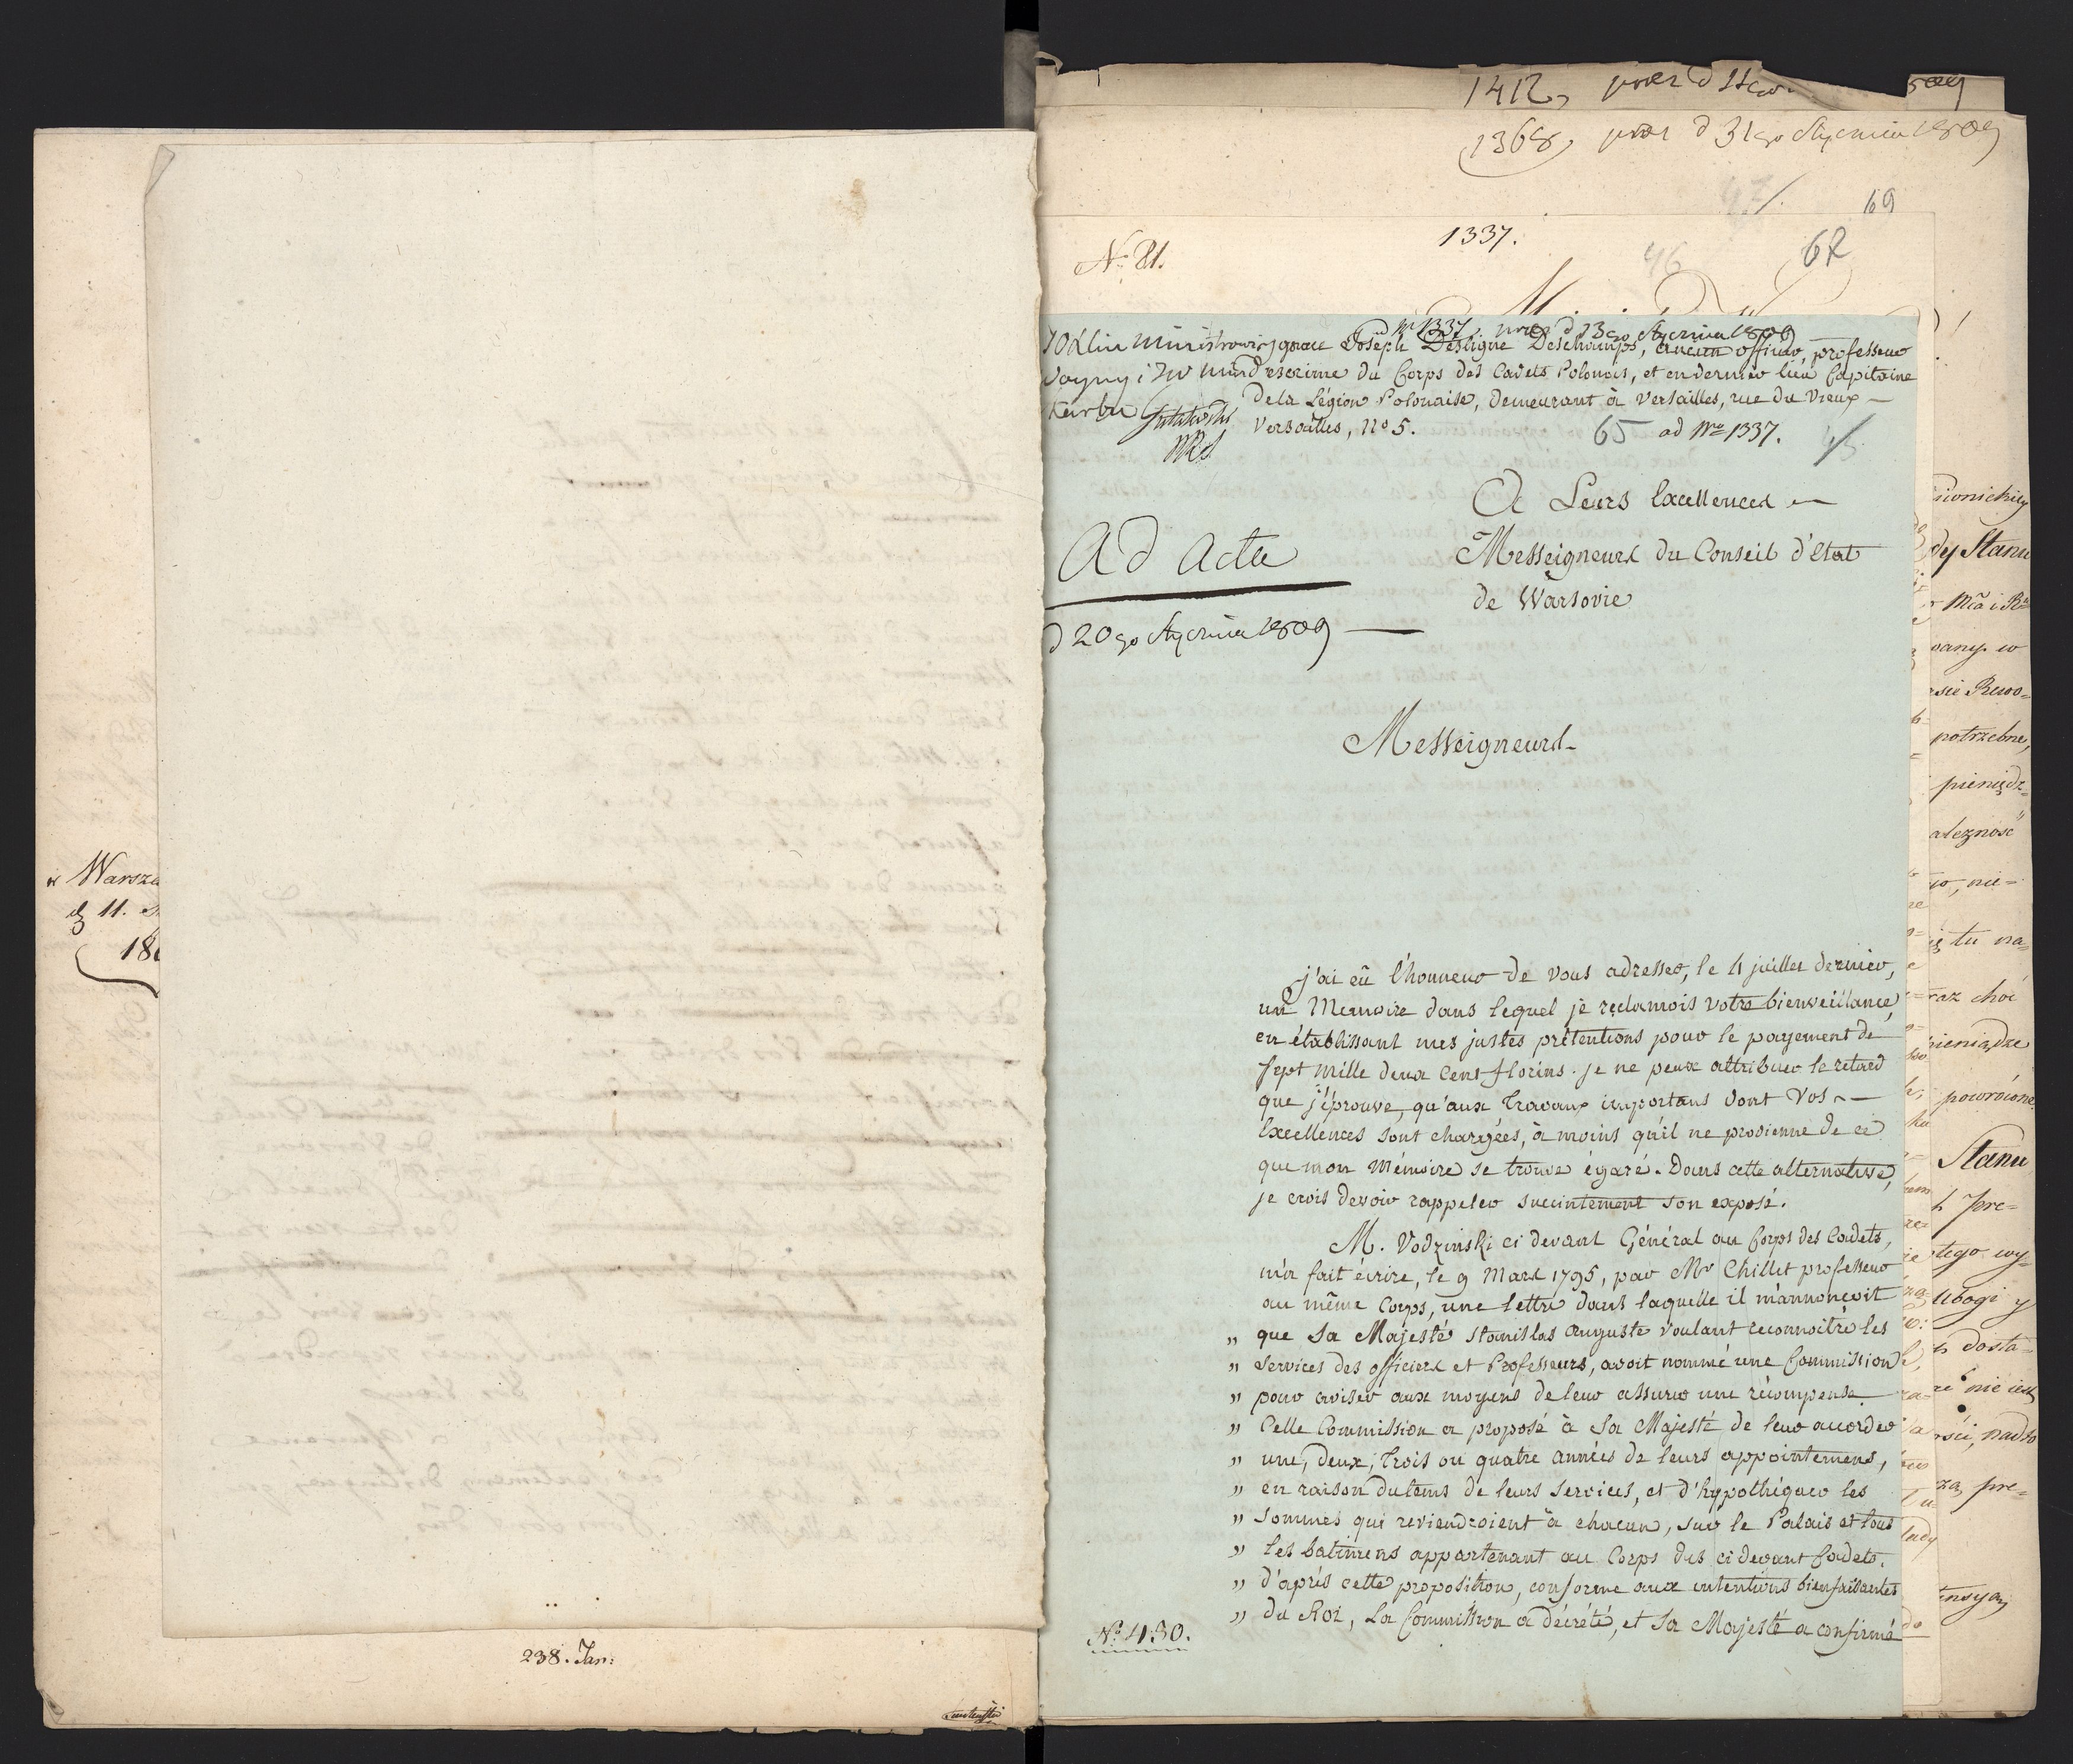 Warsza
11.
238. Jan:
1412,
1368, d 31go Stycznia 1809
69
1337.
No 81.
46
62
No 1337. d 13go Stycznia 1809
Joseph Desligne Deschamps, ancien officier, professeur
d'escrime du Corps des Cadets Polonois, et en dernier lieu Capitaine
de la Légion Polonaise, demeurant à Versailles, rue du Vieux
Versailles, No 5.
65 ad Nro 1337.
A Leurs Excellences
Messeigneurs du Conseil d'Etat
de Warsovie
Ad Acta
d 20go Stycznia 1809
Messeigneurs
j'ai eû l'honneur de vous adresser, le 4 juillet dernier,
un Memoire dans lequel je reclamois votre bienveillance,
en établissant mes justes prétentions pour le payement de
sept mille deux cent florins. je ne peux attribuer le retard
que j'éprouve, qu'aux travaux importans dont Vos
Excellences sont chargées, à moins qu'il ne provienne de ce
que mon Mémoire se trouve égaré. Dans cette alternative,
je crois devoir rappeler succintement son exposé.
M. Vodzinski ci devant Général au Corps des Cadets,
m'a fait écrire, le 9 Mars 1795, par Mr Chillet professeur
au même Corps, une lettre dans laquelle il m'annonçoit
" que Sa Majesté Stanislas Auguste voulant reconnoitre les
" Services des officiers et Professeurs, avoit nommé une Commission
" pour aviser aux moyens de leur assurer une récompense
" Cette Commission a proposé à Sa Majesté de leur accorder
" une, deux, trois ou quatre années de leurs appointemens,
" en raison du tems de leurs services, et d'hypothéquer les
" Sommes qui reviendroient à chacun, sur le Palais et tous
" les batimens appartenant au Corps des ci devant Cadets.
" d'après cette proposition, conforme aux intentions bienfaisantes
" du Roi, La Commission a décrété, et Sa Majesté a confirmé
No 430.
dy Stanu
potrzebne,
pieniądz=
tu na=
raz choć
pieniądze
powrócone
Stanu
pre=
tego wy=
Ubogi y
dosta=
nie iest
pre=